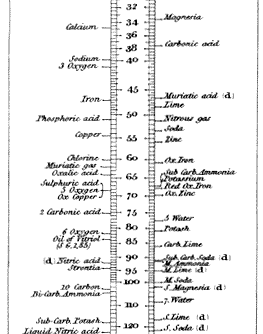 32
Magnesia
34
Calcium
36
Carbonic acid
38
Sodium
40
3 Oxygen
45
Muriatic acid (d)
Iron
Lime
Phosphoric acid
50
Nitrous gas
Soda
Copper
55
Zinc
Chlorine
60
Ox. Iron
Muriatic gas
Oxalic acid
65
Sub Carb. Ammonia
Potassium
Sulphuric acid
Red Ox. Iron
5 Oxygen
70
Ox. Zinc
Ox Copper
2 Carbonic acid
75
5 Water
80
Potash
6 Oxygen
Oil of Vitriol
85
Carb. Lime
90
Sub. Carb. Soda (d)
(d) Nitric acid
M. Ammonia
Strontia
95
M. Lime (d)
100
M. Soda
10 Carbon
S. Magnesia (d)
Bi-Carb. Ammonia
110
7. Water
S. Lime (d)
Sub-Carb. Potash
120
S. Soda (d)
Liquid Nitric acid